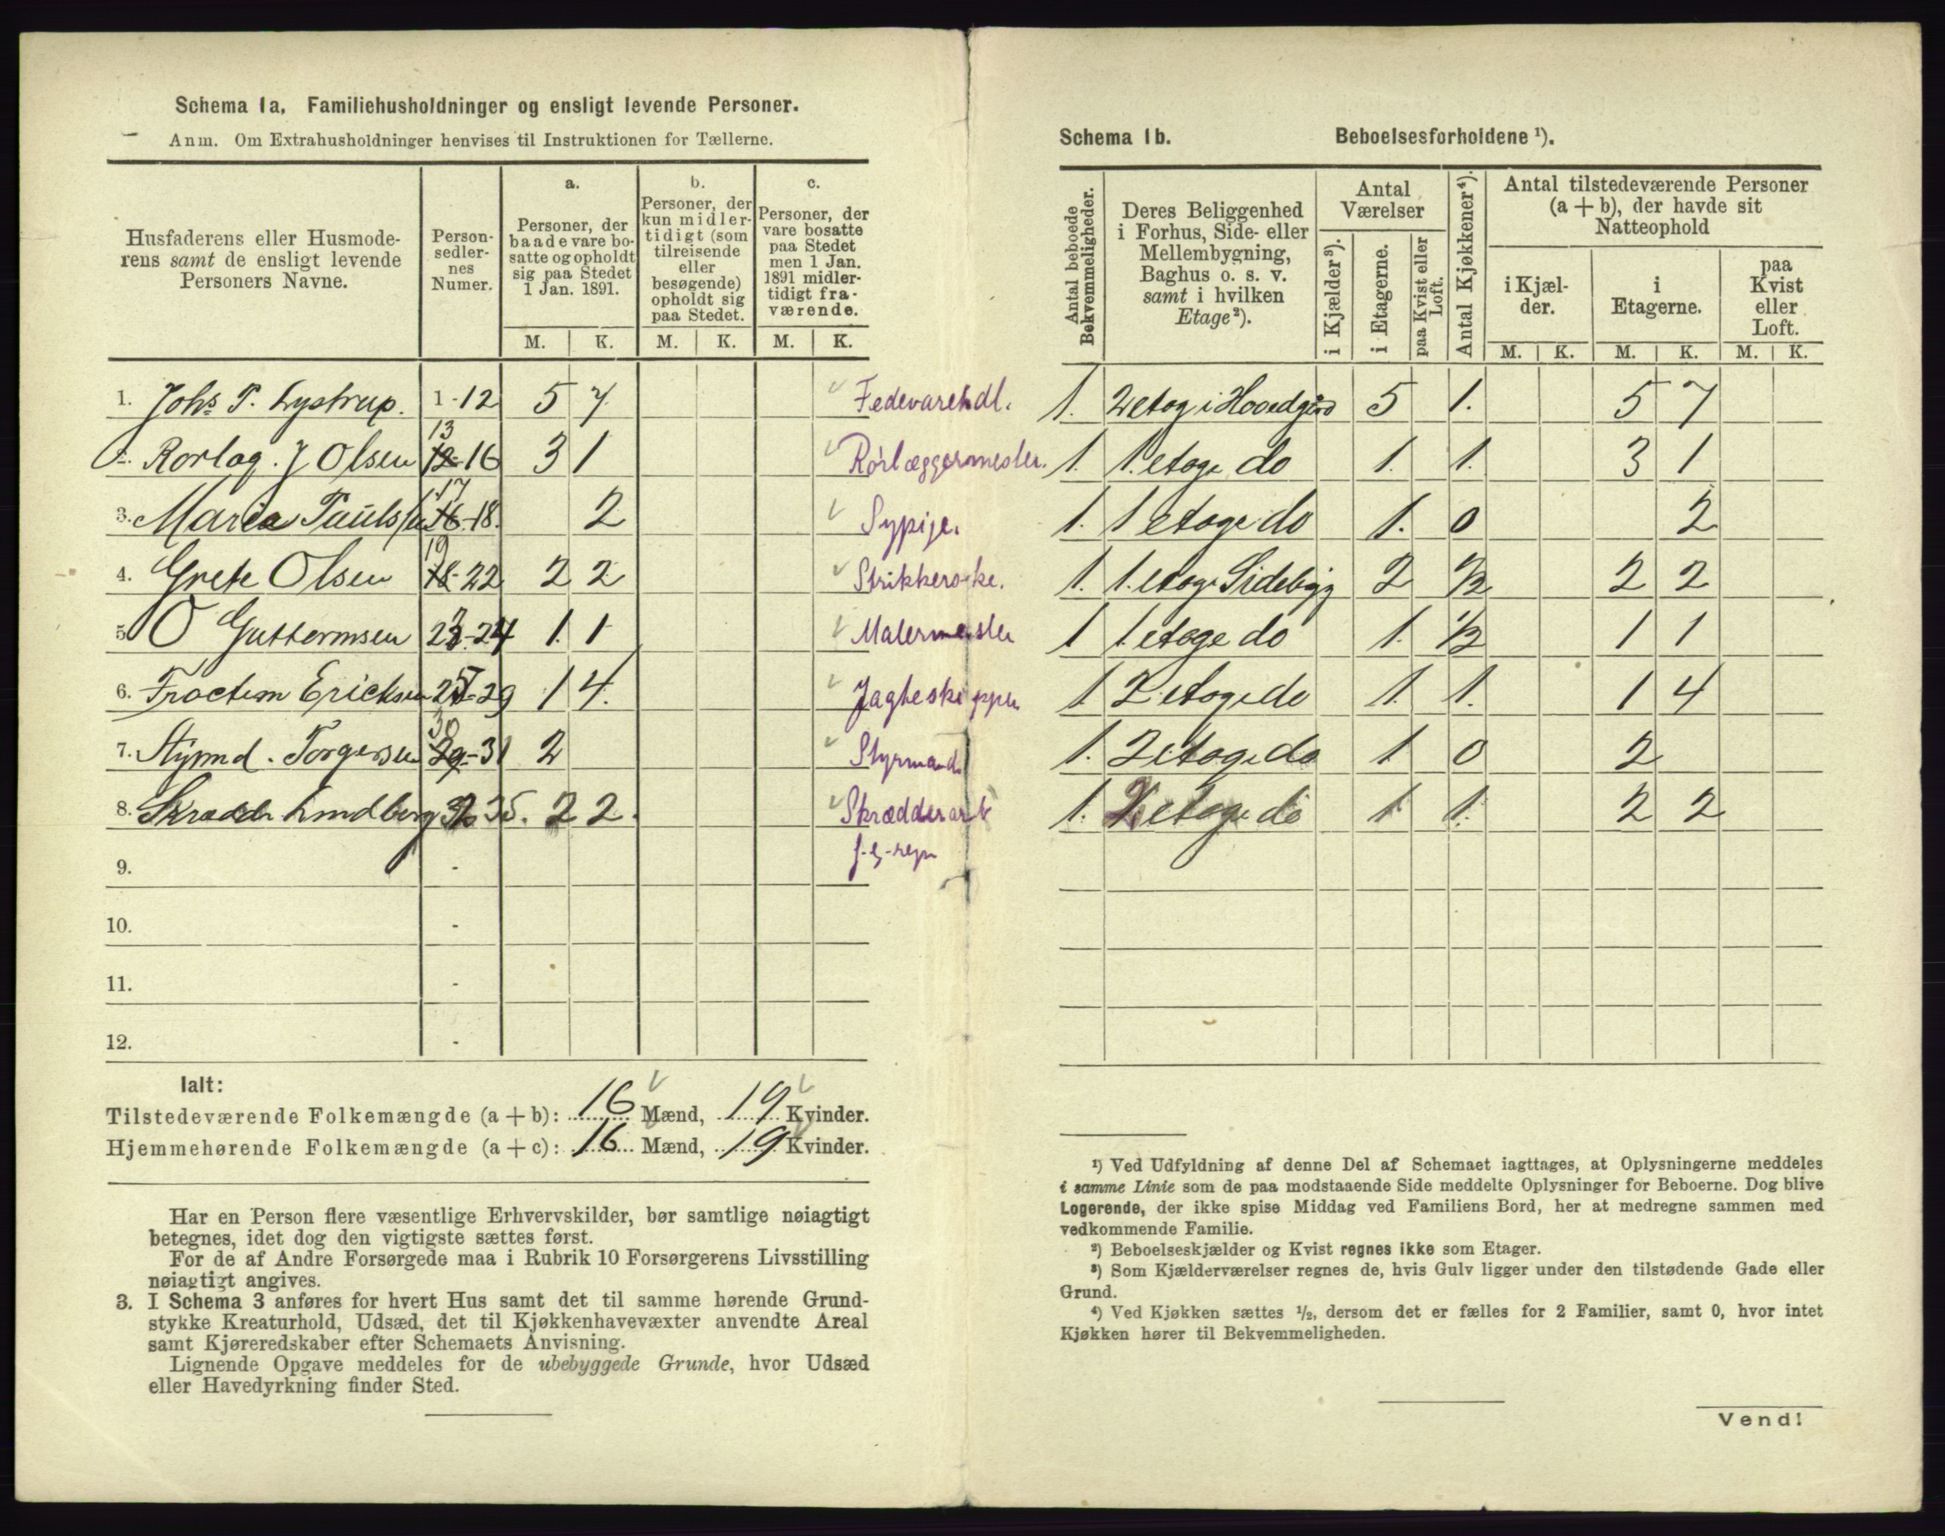 Schema 1a, Familiehusholdninger og ensligt levende Personer.
Anm. Om Extrahusholdninger henvises til Instruktionen for Tællerne.
Husfaderens eller Husmode-
rens samt de ensligt levende
Personers Navne.
Person-
sedler-
nes
Numer.
a.
Personer, der
baade vare bo-
satte og opholdt
sig paa Stedet
1 Jan. 1891.
b.
Personer, der
kun midler-
tidigt (som
tilreisende
eller
besøgende)
opholdt sig
paa Stedet.
c.
Personer, der
vare bosatte
paa Stedet
men 1 Jan.
1891 midler-
tidigt fra-
værende.
M. K. M. K. M. K.
1. Johs T. Lystrup. 1-12 5 7 Fedevarehdl.
2. Rorlag. J Olsen 13 12-16 3 1 Rörlæggermester.
3. Maria Paulsen 17 16-18. 2 Sypige.
4. Grete Olsen 19 18-22 2 2 Strikkerske.
5 O Guttormsen 23-24 1 1 Malermester
6. Ericksen 25-29 1 4. Jagteskipper
7. Styrmd. Torgersen 30 29-31 2 Styrmand
8. Skrædder Lindberg 32-35. 2 2. Skrædderarb
f. eg. regn
9. -
10. -
11. -
12. -
Ialt:
Tilstedeværende Folkemængde (a + b): 16 Mænd, 19 Kvinder.
Hjemmehørende Folkemængde (a + c): 16 Mænd, 19 Kvinder.
Har en Person flere væsentlige Erhvervskilder, bør samtlige nøiagtigt
betegnes, idet dog den vigtigste sættes først.
For de af Andre Forsørgede maa i Rubrik 10 Forsørgerens Livsstilling
nøiagtigt angives.
3. I Schema 3 anføres for hvert Hus samt det til samme hørende Grund-
stykke Kreaturhold, Udsæd, det til Kjøkkenhavevæxter anvendte Areal
samt Kjøreredskaber efter Schemaets Anvisning.
Lignende Opgave meddeles for de ubebyggede Grunde, hvor Udsæd
eller Havedyrkning finder Sted.
Schema 1b. Beboelsesforholdene ¹).
Antal beboede
Bekvemmeligheder.
Deres Beliggenhed
i Forhus, Side- eller
Mellembygning,
Baghus o. s. v.
samt i hvilken
Etage²).
Antal
Værelser
i Kjælder³).
i Etagerne.
paa Kvist eller
Loft.
Antal Kjøkkener⁴).
Antal tilstedeværende Personer
(a + b), der havde sit
Natteophold
i Kjæl-
der.
i
Etagerne.
paa
Kvist
eller
Loft.
M. K. M. K. M. K.
1. 2 etag i Hovedgård 5 1. 5 7
1. 1. etage do 1. 1. 3 1
1. 1 etage do 1. 0 2
1. 1. etage Sidebyg 2 ½ 2 2
1 1 etage do 1. ½ 1 1
1 2 etage do 1. 1. 1 4
1. 2 etage do 1 0 2
1. 2 etage do 1 1. 2 2
¹) Ved Udfyldning af denne Del af Schemaet iagttages, at Oplysningerne meddeles
i samme Linie som de paa modstaaende Side meddelte Oplysninger for Beboerne. Dog blive
Logerende, der ikke spise Middag ved Familiens Bord, her at medregne sammen med
vedkommende Familie.
²) Beboelseskjælder og Kvist regnes ikke som Etager.
³) Som Kjælderværelser regnes de, hvis Gulv ligger under den tilstødende Gade eller
Grund.
⁴) Ved Kjøkken sættes ½, dersom det er fælles for 2 Familier, samt 0, hvor intet
Kjøkken hører til Bekvemmeligheden.
Vend!